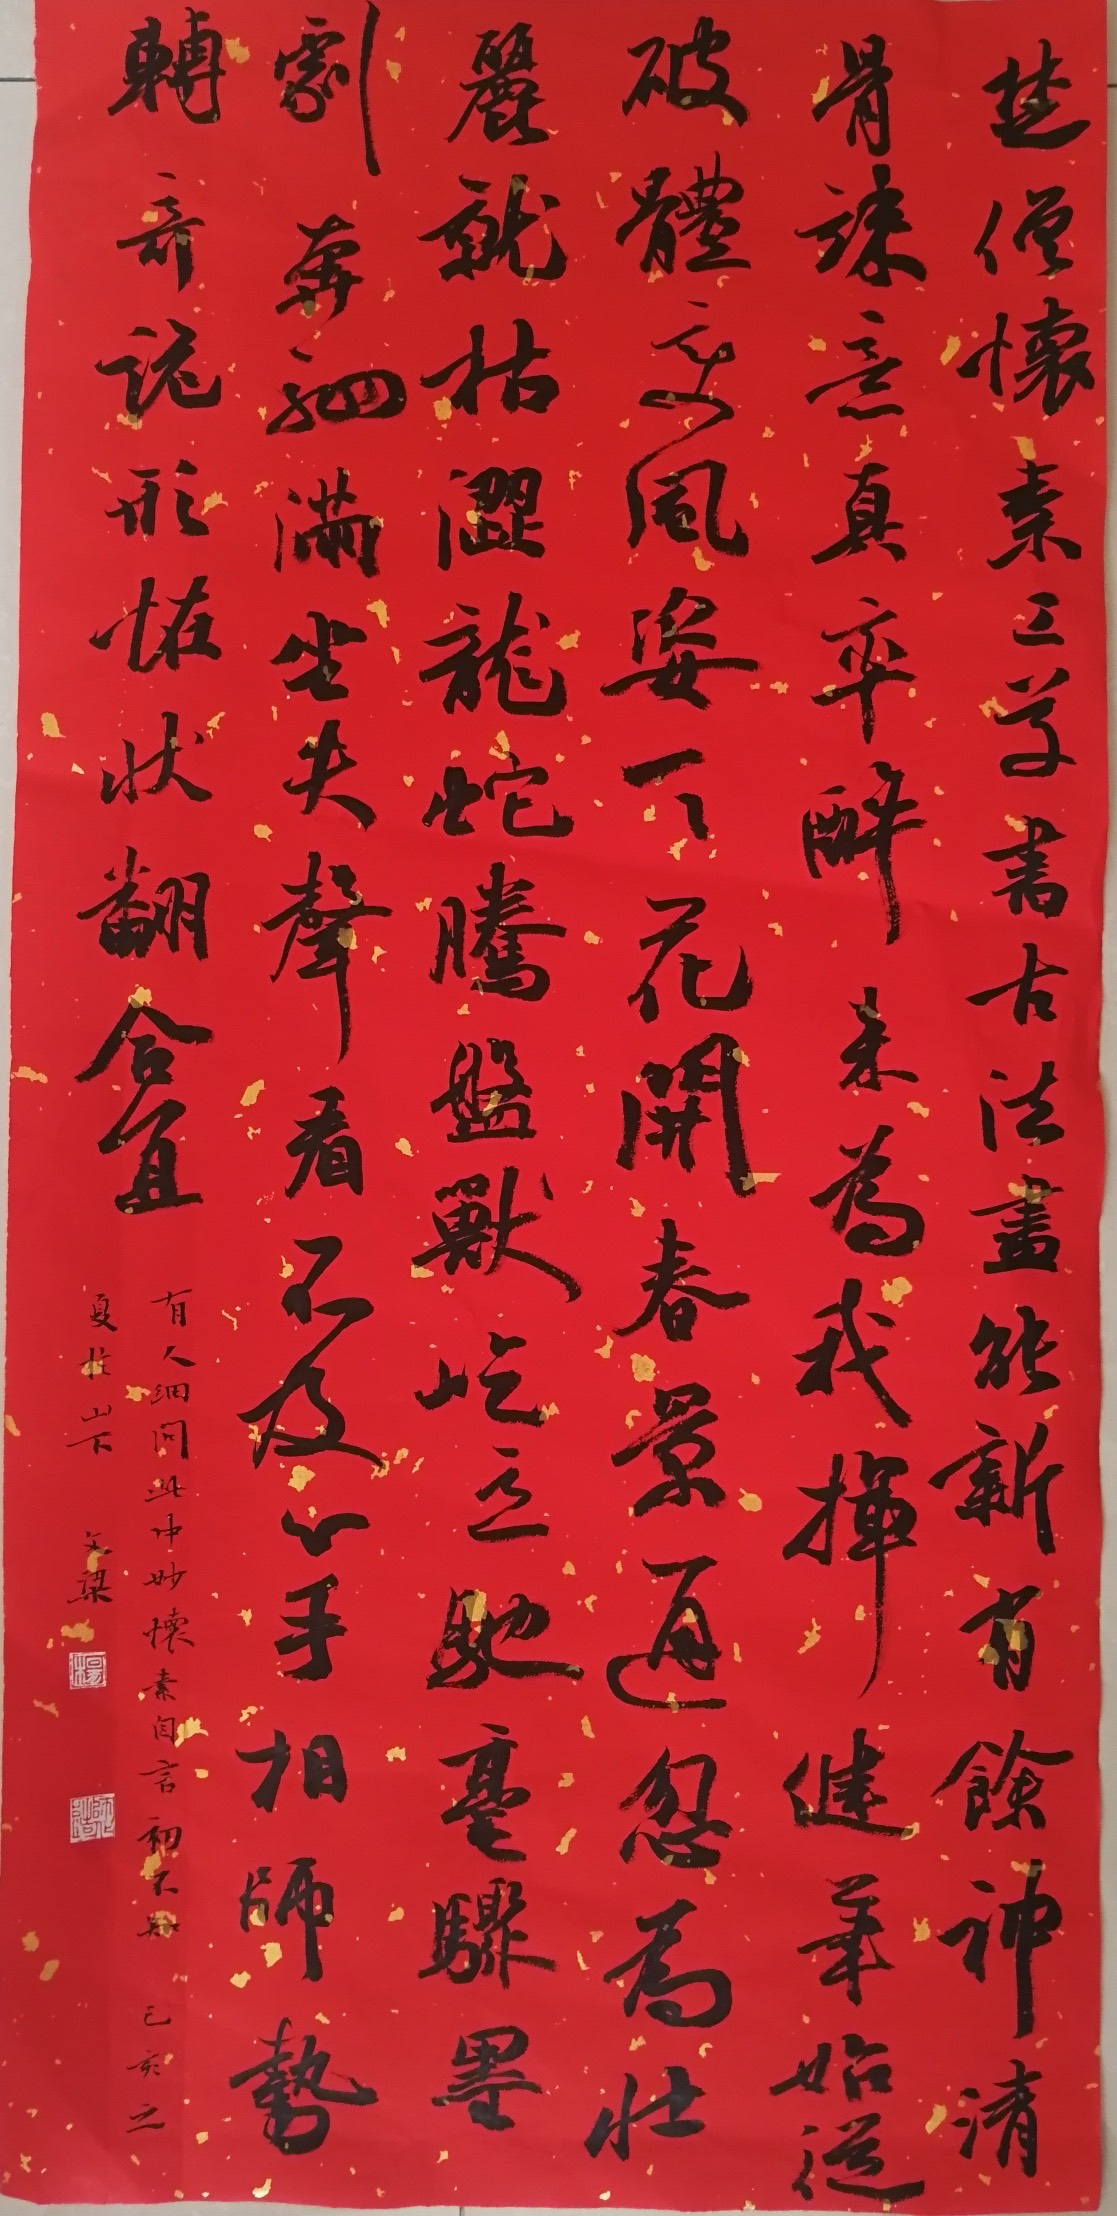 楚僧懷素工草書古法盡能新有餘神清
骨竦意真率醉来為我揮健筆始從
破體变風姿一一花開春景通忽為壯
麗就枯澀龍蛇騰盤獸屹立馳毫驟墨
劇奔駟滿坐失聲看不及心手相師勢
轉奇詭形恠狀翻合宜
有人細問此中妙懷素自言初不知 己亥之
夏於山下 文梁
楊